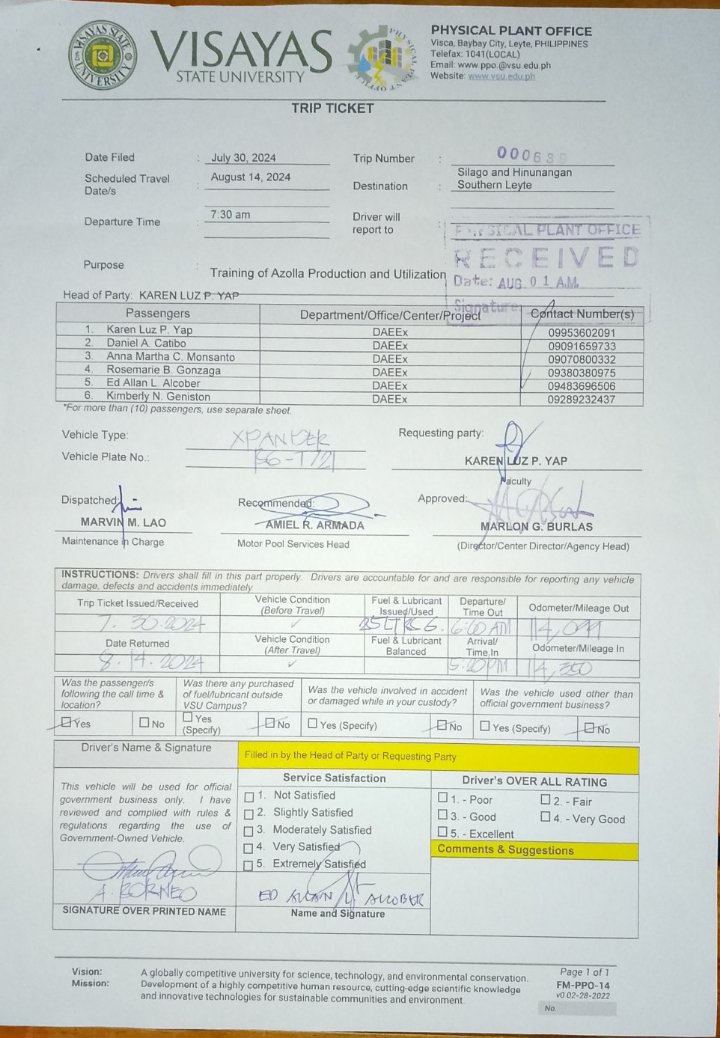 VISAYAS STATE UNIVERSITY
VISAYAS
STATE UNIVERSITY
PHYSICAL PLANT OFFICE
PHYSICAL PLANT OFFICE
Visca, Baybay City, Leyte, PHILIPPINES
Telefax: 1041(LOCAL)
Email: www.ppo.@vsu.edu.ph
Website: www.vsu.edu.ph
TRIP TICKET
Date Filed : July 30, 2024 Trip Number : 000639
Scheduled Travel Date/s : August 14, 2024 Destination : Silago and Hinunangan Southern Leyte
Departure Time : 7:30 am Driver will report to :
PHYSICAL PLANT OFFICE
RECEIVED
Date: AUG 01 A.M.
Signature
Purpose : Training of Azolla Production and Utilization
Head of Party: KAREN LUZ P. YAP
Passengers Department/Office/Center/Project Contact Number(s)
1. Karen Luz P. Yap DAEEx 09953602091
2. Daniel A. Catibo DAEEx 09091659733
3. Anna Martha C. Monsanto DAEEx 09070800332
4. Rosemarie B. Gonzaga DAEEx 09380380975
5. Ed Allan L. Alcober DAEEx 09483696506
6. Kimberly N. Geniston DAEEx 09289232437
*For more than (10) passengers, use separate sheet.
Vehicle Type: XPANDER Requesting party:
Vehicle Plate No.: KAREN LUZ P. YAP
Faculty
Dispatched: Recommended: Approved:
MARVIN M. LAO AMIEL R. ARMADA MARLON G. BURLAS
Maintenance in Charge Motor Pool Services Head (Director/Center Director/Agency Head)
INSTRUCTIONS: Drivers shall fill in this part properly. Drivers are accountable for and are responsible for reporting any vehicle
damage, defects and accidents immediately
Trip Ticket Issued/Received Vehicle Condition (Before Travel) Fuel & Lubricant Issued/Used Departure/ Time Out Odometer/Mileage Out
7.30.2024 ✓ 6:00 AM 114,099
Date Returned Vehicle Condition (After Travel) Fuel & Lubricant Balanced Arrival/ Time.In Odometer/Mileage In
8.14.2024 ✓ 5:20PM 114,350
Was the passenger/s following the call time & location? Was there any purchased of fuel/lubricant outside VSU Campus? Was the vehicle involved in accident or damaged while in your custody? Was the vehicle used other than official government business?
Yes No Yes (Specify) No Yes (Specify) No Yes (Specify) No
Driver's Name & Signature Filled in by the Head of Party or Requesting Party
Service Satisfaction Driver's OVER ALL RATING
This vehicle will be used for official
government business only. I have
reviewed and complied with rules &
regulations regarding the use of
Government-Owned Vehicle.
1. Not Satisfied
2. Slightly Satisfied
3. Moderately Satisfied
4. Very Satisfied
5. Extremely Satisfied
1. - Poor 2. - Fair
3. - Good 4. - Very Good
5. - Excellent
Comments & Suggestions
A. BORNEO ED ALLAN L. ALCOBER
SIGNATURE OVER PRINTED NAME Name and Signature
Vision: A globally competitive university for science, technology, and environmental conservation.
Mission: Development of a highly competitive human resource, cutting-edge scientific knowledge
and innovative technologies for sustainable communities and environment.
Page 1 of 1
FM-PPO-14
v0 02-28-2022
No.